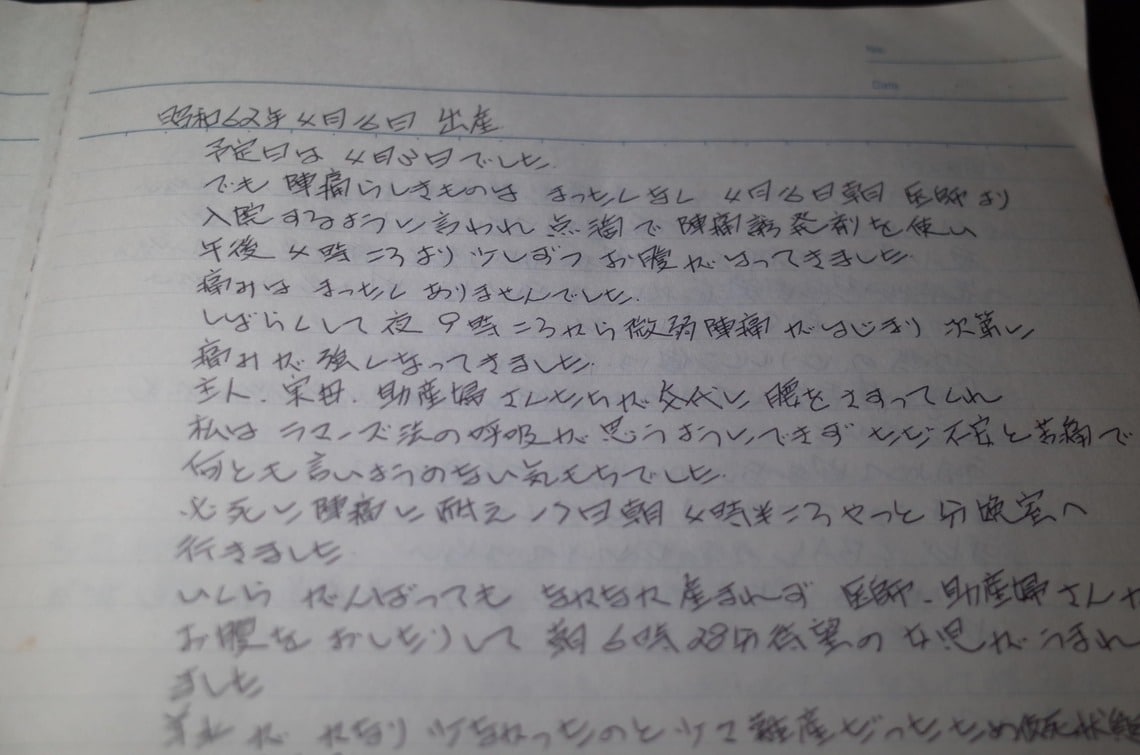 Date
昭和62年4月16日 出産
予定日は 4月3日でした.
でも 陣痛らしきものは まったくなく 4月16日朝 医師より
入院するように言われ 点滴で 陣痛誘発剤を使い
午後 4時ころより少しずつ お腹がはってきました.
痛みは まったく ありませんでした.
しばらくして夜 9時ころから微弱陣痛がはじまり 次第に
痛みが強くなってきました.
主人. 実母. 助産婦さんたちが交代に腰をさすってくれ
私は ラマーズ法の呼吸が思うようにできず ただ不安と苦痛で
何とも言いようのない気もちでした.
必死に陣痛に耐え 17日朝 4時半ころやっと分娩室へ
行きました
いくら がんばっても なかなか産まれず 医師. 助産婦さんが
お腹を おしたりして 朝6時28分待望の女児がうまれ
ました
羊水が かなり少なかったのと少々難産だったため仮死状態